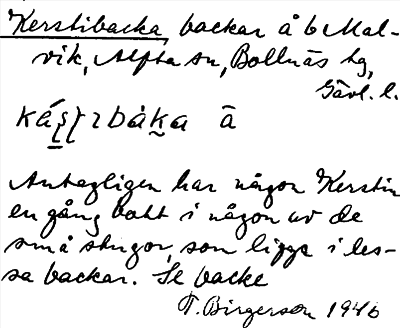 Kerstibacka, backar å b Mal-
vik, Alfta sn, Bollnäs tg,
Gävl. l.
ā
Antagligen har någon Kerstin
en gång bott i någon av de
små stugor, som ligga i des-
sa backar. Se backe
T. Birgerson 1946